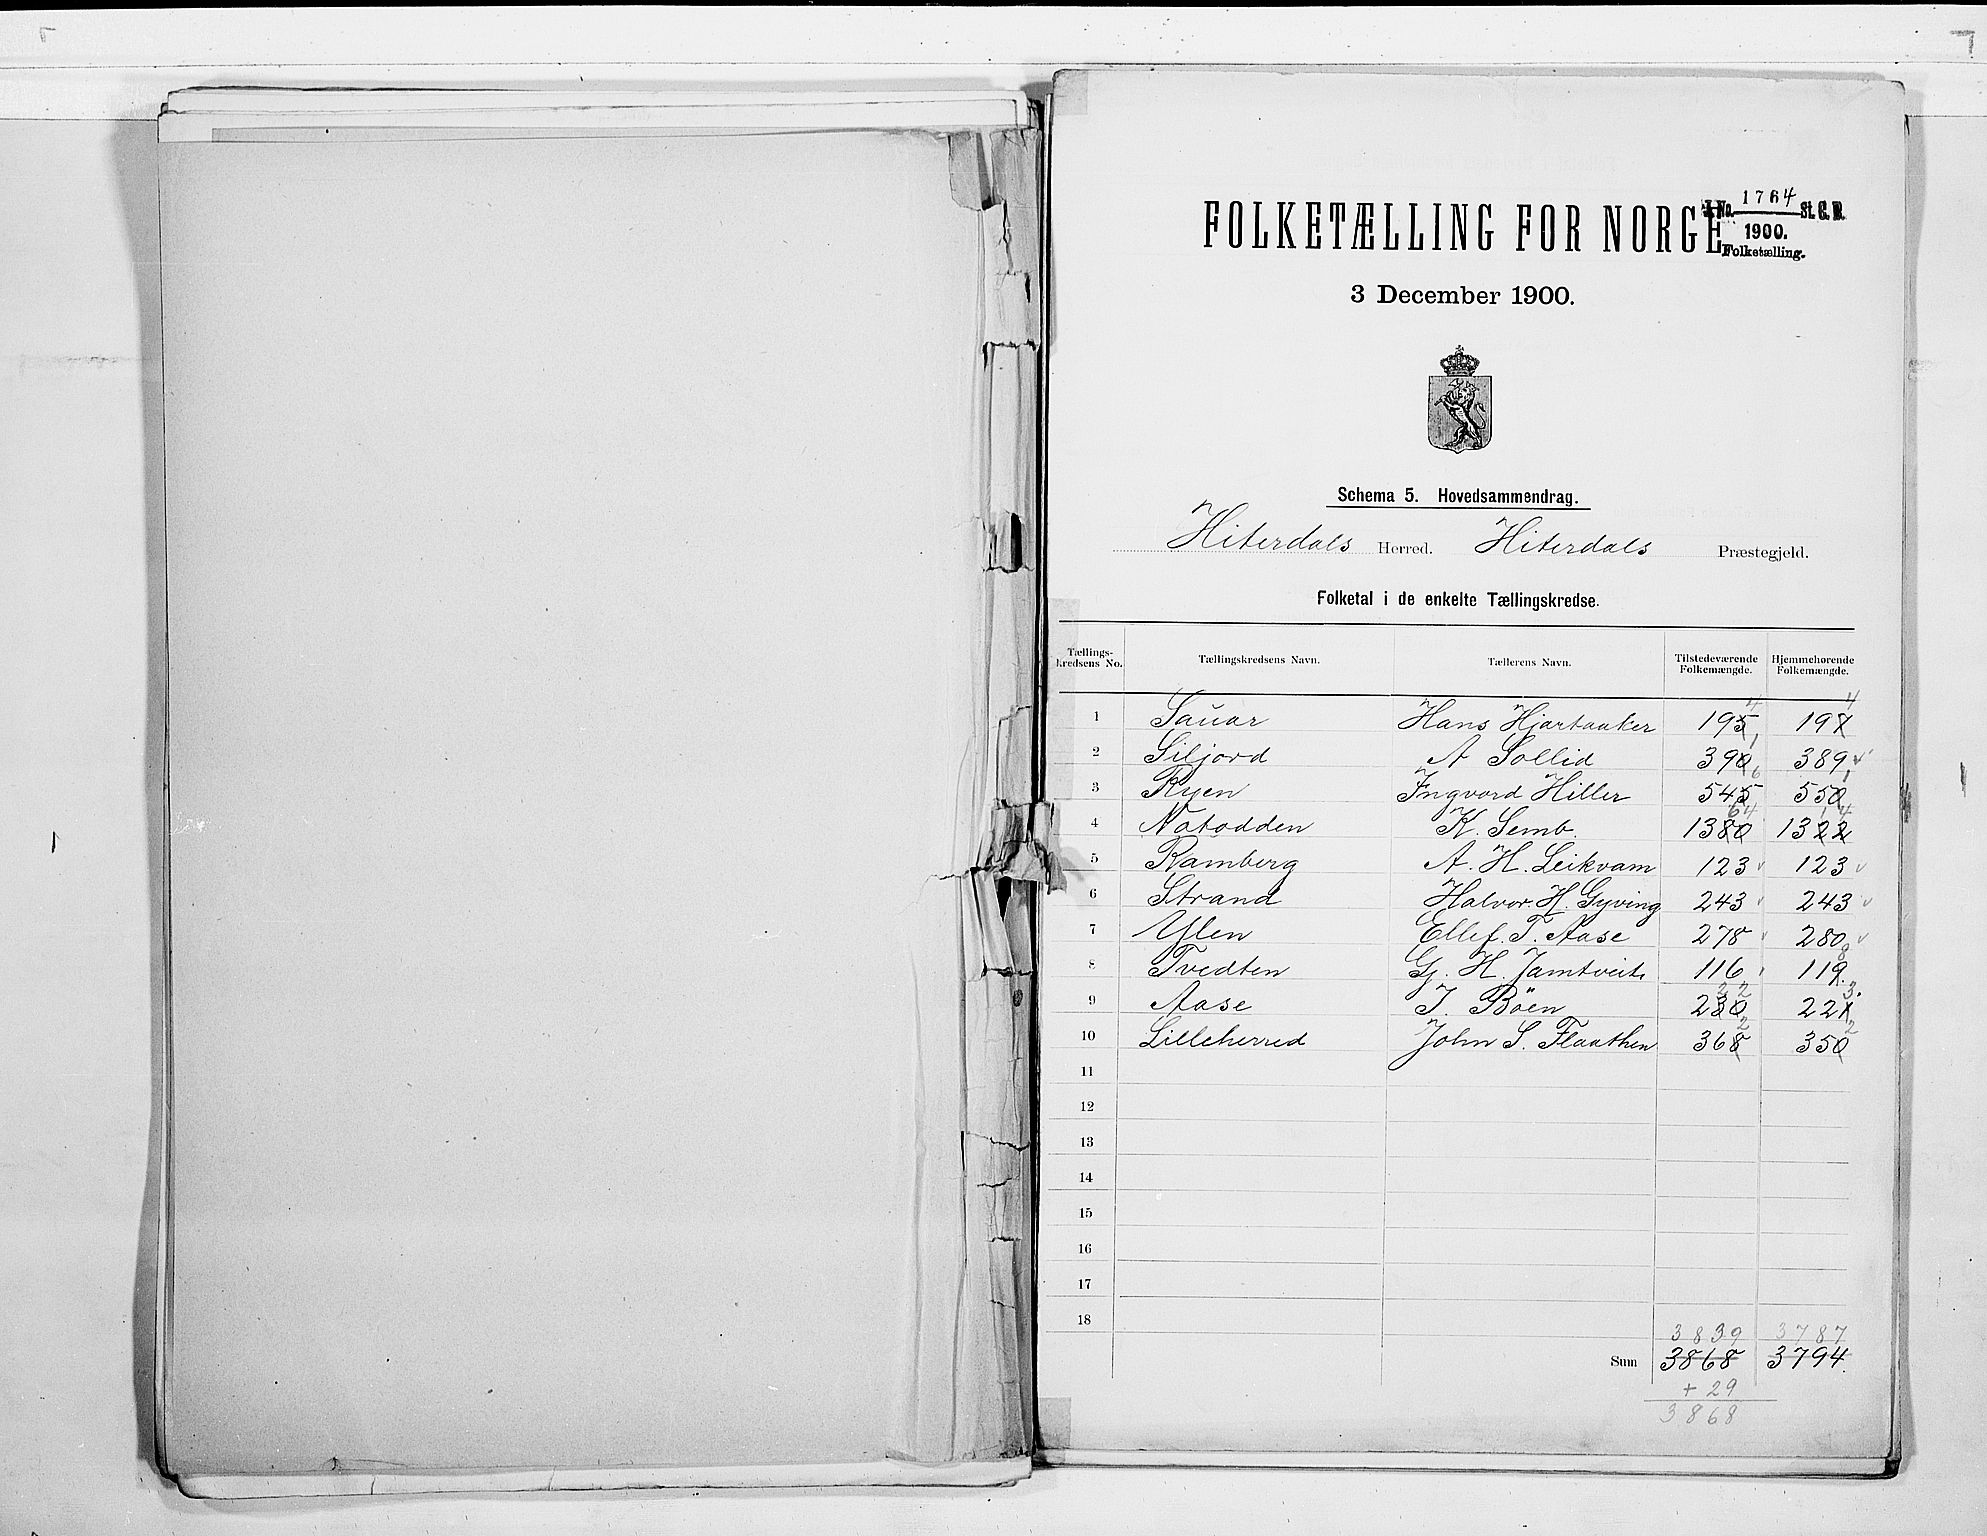 FOLKETÆLLING FOR NORGE
J. No. 1764 St. C. B.
1900.
Folketælling.
3 December 1900.
Schema 5. Hovedsammendrag.
Hiterdals Herred. Hiterdals Præstegjeld.
Folketal i de enkelte Tællingskredse.
Tællings-kredsens No. Tællingskredsens Navn. Tællerens Navn. Tilstedeværende Folkemængde. Hjemmehørende Folkemængde.
4 4
1 Sauar Hans Hjartaaker 195 197
1
2 Siljord A Sollid 390 389
6 1
3 Ryen Ingvard Hiller 545 550
64 14
4 Notodden K. Semb. 1380 1322
5 Ramberg A. H. Leikvam 123 123
6 Strand Halvor H. Gyving 243 243
7 Ylen Ellef. T. Aase 278 280
8
8 Tvedten Gj. H. Jamtveit 116 119
22 3
9 Aase J. Böen 230 221
2 2
10 Lilleherred John S. Flaathen 368 350
11
12
13
14
15
16
17
18
3839 3787
Sum 3868 3794.
+ 29
3868